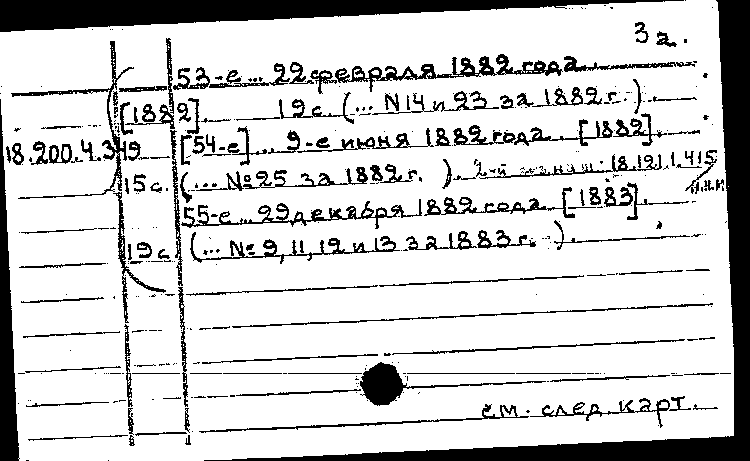 3 а.
53-е ... 22 февраля 1882 года.
[1882]. 19 с. (... N 14 и 23 за 1882 г.).
18.200.4.349 [54-е] ... 9-е июня 1882 года. [1882].
15 с. (... № 25 за 1882 г.). 2-й 18.121.1.415
55-е ... 29 декабря 1882 года. [1883].
19 с. (... № 9, 11, 12 и 13 за 1883 г.).
см. след. карт.